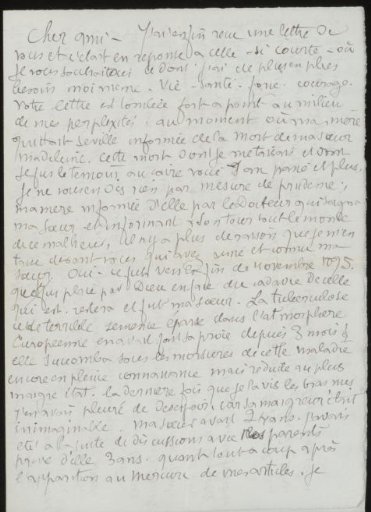 Cher ami - J'ai enfin reçu une lettre de
vous et c'était en réponse à celle - si courte - où
je vous souhaitais ce dont j'ai de plus en plus
besoin moi même - Vie - Santé - force - courage.
Votre lettre est tombée fort à point au milieu
de mes perplexités, au moment où ma mère
quittait Séville informée de la mort de ma sœur
Madeleine. Cette mort dont je me taisais et dont
je fus le témoin, au Caire voici 1 an passé et plus,
je ne vous en dis rien par mesure de prudence,
ma mère informée d'elle par le docteur qui soigna
ma sœur, et informant à son tour tout le monde
de ce malheur, il n'y a plus de raison que je m'en
taise devant vous qui avez aimé et connu ma
sœur. Oui - ce fut vers la fin de novembre 1925.
que fus placé par Dieu en face du cadavre de celle
qui est, restera et fut ma sœur. La tuberculose
cette terrible semence éparse dans l'atmosphère
Européenne en avait fait sa proie depuis 3 mois &
elle succomba sous les morsures de cette maladie
encore en pleine connaissance mais réduite au plus
maigre état. la dernière fois que je la vis les bras nus
j'en avais pleuré de désespoir car sa maigreur était
inimaginable. Ma sœur avait 27 ans. J'avais
été à la suite de discussions avec mes parents
privé d'elle 3 ans. quand tout à coup après
l'apparition au Mercure de mes articles. Je